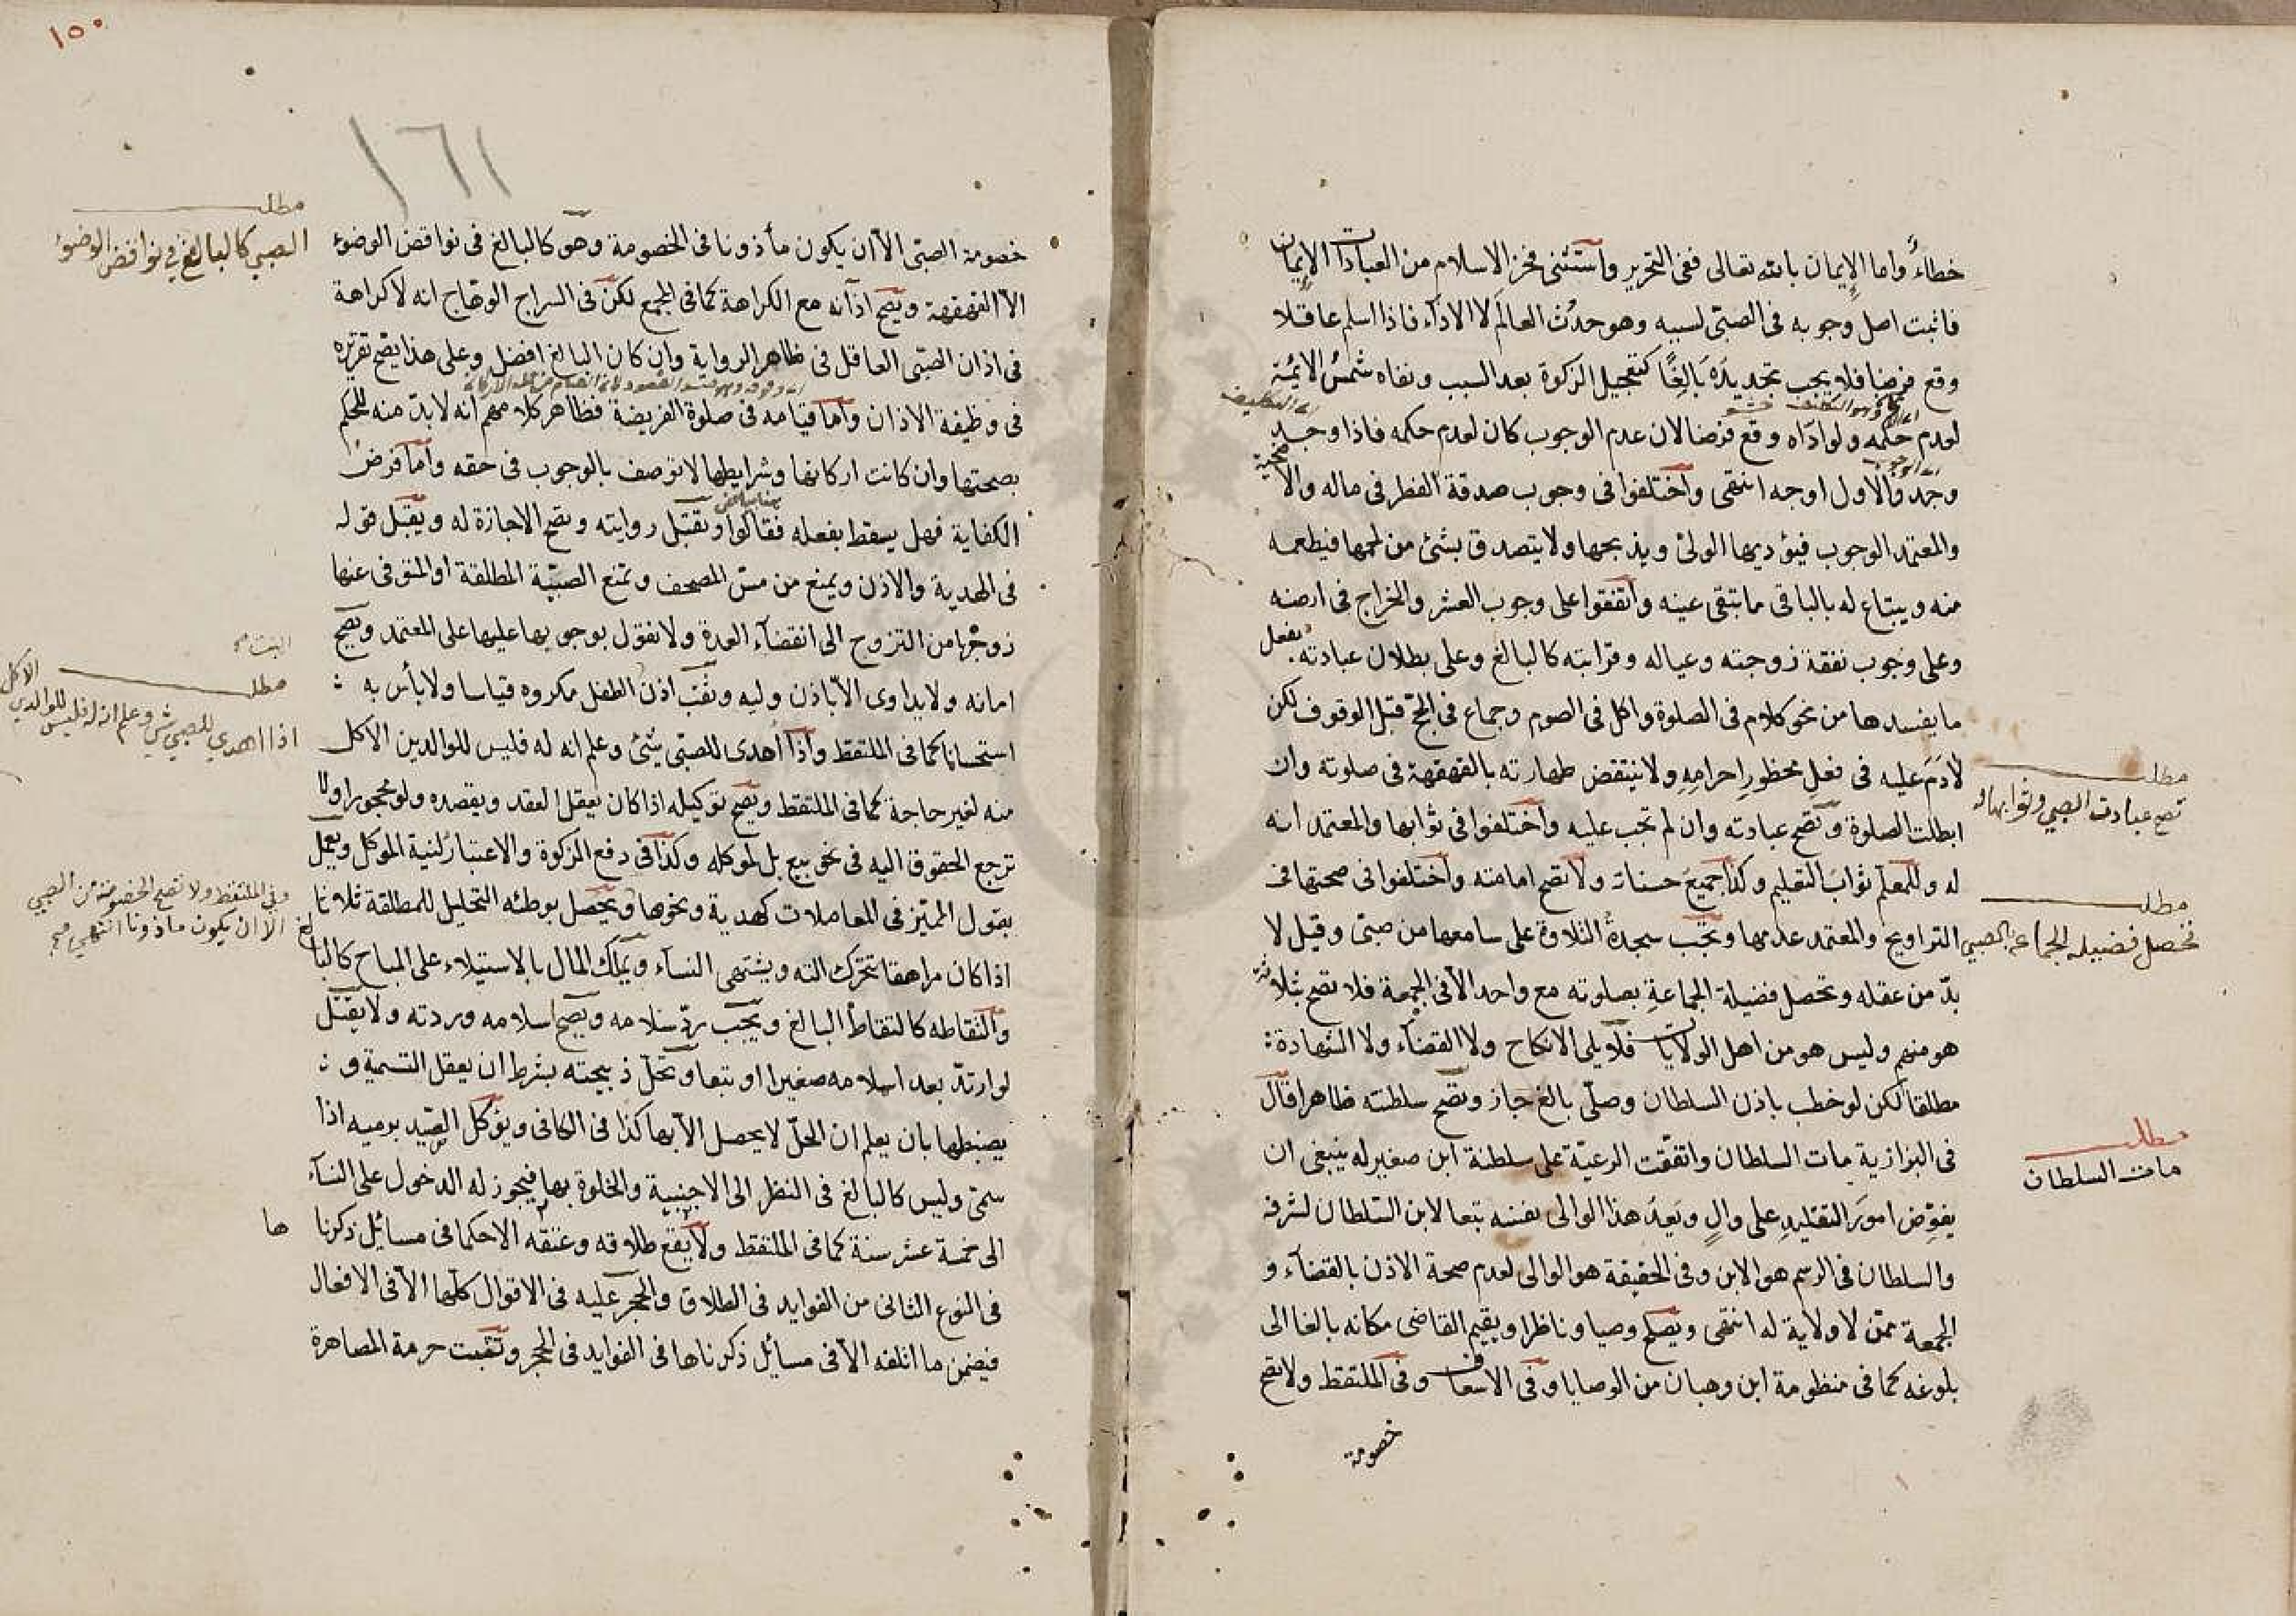 خطاءً واما الإيمان بالله تعالى ففى التحرير واستثنى فخر الاسلام من العبادات الإيمان
فاثبت اصل وجوبه فى الصبىّ لسببه وهو حدُث العالَم لا الادآء فاذا اسلم عاقلا
وقع فرضا فلا يجب تجديدُهَ بَالِغًا كتعجيل الزكوة بعد السبب ونفاه شمسُ الائمّة
لعدم حكمه ولو ادّاه وقع فرضا لان عدم الوجوب كان لعدم حكمه فاذا وجد
وجد والاول اوجه انتهى واختلفوا فى وجوب صدقة الفطر فى ماله والاضحية
والمعتمد الوجوب فيؤديها الولىّ ويذبحها ولا يتصدق بشئ من لحمها فيطعمه
منه ويبتاع له بالباقى ما تبقى عينه واتفقوا على وجوب العشر والخراج فى ارضه
وعلى وجوب نفقة زوجته وعياله وقرابته كالبالغ وعلى بطلان عبادته بفعل
ما يفسدها من نحو كلام فى الصلوة واكل فى الصوم وجماع فى الحجّ قبل الوقوف لكن
لا دَمَ عليه فى فعلِ محظورِ احرامِهِ ولا ينتقض طهارته بالقهقهة فى صلوته وان
ابطلت الصلوة وتصح عبادته وان لم تجب عليه واختلفوا فى ثوابها والمعتمد انه
له وللمعلّم ثوابَ التعليم وكذا جميعَ حسناته ولا تصح امامته واختلفوا فى صحتها فى
التراويح والمعتمد عدمها وتجب سجدةُ التلاوة على سامعها من صبىّ وقيل لا
بدّ من عقله وتحصل فضيلة الجماعةِ بصلوته مع واحد الّا فى الجمعة فلا تصح بثلاثة
هو منهم وليس هو من اهل الولايات فلا يلى الانكاح ولا القضآء ولا الشهادة
مطلقا لكن لو خطب باذن السلطان وصلّى بالغ جاز وتصح سلطنته ظاهرا قال
فى البزازية مات السلطان واتفقت الرعيّة على سلطنة ابن صغير له ينبغى ان
يفوّض امورَ التقليدِ على والٍ ويَعدّ هذا الوالى نفسه تبعا لابن السّلطان لشرفه
والسلطان فى الرسم هو الابن وفى الحقيقة هو الوالى لعدم صحة الاذن بالقضآء و
الجمعة ممّن لا ولاية له انتهى ويصلح وصيا وناظرا ويقيم القاضى مكانه بالغا الى
بلوغه كما فى منظومة ابن وهبان من الوصايا وفى الاسعاف وفى الملتقط ولا تصح
خصومة
مطلب
تصح عبادت الصبي وثوابها له
مطلب
تحصل فضيله الجماعة بالصبي
مطلب
مات السلطان
١٥٠
١٦١
خصومة الصبّى الاّ ان يكون مأذونا فى الخصومة وهو كالبالغ فى نواقض الوضوء
الاّ القهقهة ويصح اذانه مع الكراهة كما فى المجمع لكن فى السراج الوهاج انه لا كراهة
فى اذان الصبّى العاقل فى ظاهر الرواية وان كان البالغ افضل وعلى هذا يصح تقرّره
فى وظيفة الاذان وأما قيامه فى صلوة الفريضة فظاهر كلامهم انه لا بدّ منه للحكم
بصحتها وان كانت اركانها وشرايطها لا توصف بالوجوب فى حقه وأما فرض
الكفاية فهل يسقط بفعله فقالوا وتقبّل روايته وتصح الاجازة له ويقبل قوله
فى الهدية والاذن ويمنع من مسّ المصحف وتمنع الصبيّة المطلقة او المتوفى عنها
زوجها من التزوج الى انقضآء العدة ولا نقول بوجوبها عليها على المعتمد ويصح
امانه ولا يداوى الاّ باذن وليه وثقب اذن الطفل مكروه قياسا ولا بأس به
استحسانا كما فى الملتقط واذا اُهدى للصبّى شئ وعلم انه له فليس للوالدين الاكل
منه لغير حاجة كما فى الملتقط ويصح توكيله اذا كان يعقل العقد ويقصده ولو محجورا ولا
ترجع الحقوق اليه فى نحو بيع بل لموكله وكذا فى دفع الزكوة والاعتبارُ لنية الموكل ويعمل
بقول المميّز فى المعاملات كهدية ونحوها ويحصل بوطئه التحليل للمطلقة ثلاثا
اذا كان مراهقا تتحرّك الته ويشتهى النسآء ويملك المال بالاستيلاء على المباح كالبالغ
والتقاطه كالتقاط البالغ ويجب ردّ سلامه ويصح اسلامه وردته ولا يقتل
لو ارتدّ بعد اسلامه صغيرا او تبعا وتحلّ ذبيحته بشرط ان يعقل التسمية و
يضبطها بان يعلم ان الحلّ لا يحصل الاّ بها كذا فى الكافى ويؤكل الصّيد برميه اذا
سمّى وليس كالبالغ فى النظر الى الاجنبية والخلوة بها فيجوز له الدخول على النسآء
الى خمسة عشر سنة كما فى الملتقط ولا يقع طلاقه وعتقه الا حكما فى مسائل ذكرناها
فى النوع الثانى من الفوايد فى الطلاق والحجر عليه فى الاقوال كلّها الاّ فى الافعال
فيضمن ما اتلفه الاّ فى مسائل ذكرناها فى الفوايد فى الحجر وتثبت حرمة المصاهرة
مطلب
الصبي كالبالغ في نواقض الوضوء
مطلب
اذا اهدي للصبي شئ وعلم انه له فليس للوالدين الاكل
وفى الملتقط ولا تصح الخصومة من الصبي
الا ان يكون ماذونا انتهى صح